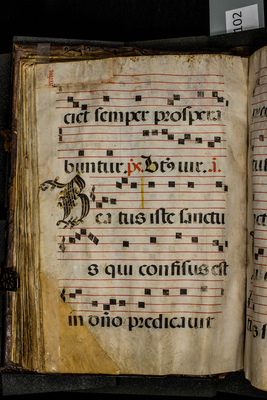 102
ciet semper prospera
buntur. ps. Bts vir. i.
Bea tus iste sanctu
s qui confisus est
in dño predicauit